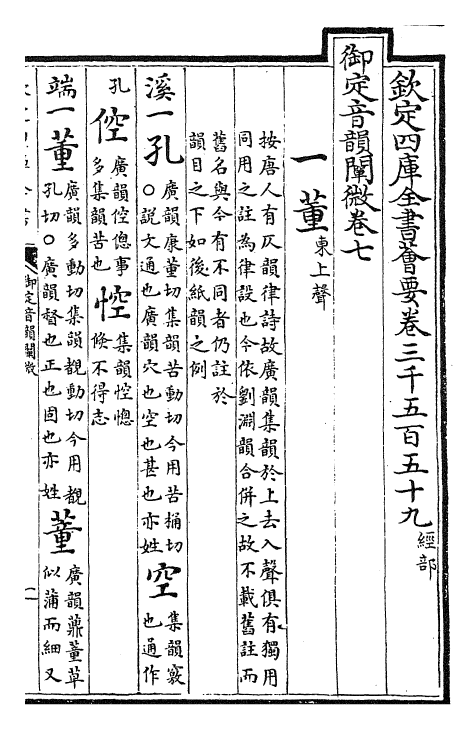 欽定四庫全書薈要卷三千五百五十九 經部
御定音韻闡微卷七
一董 東上聲
按唐人有仄韻律詩故廣韻集韻於上去入聲俱有獨用
同用之註為律設也今依劉淵韻合併之故不載舊註而
舊名與今有不同者仍註於
韻目之下如後紙韻之例
溪一孔 廣韻康董切集韻苦動切今用苦桶切
○說文通也廣韻穴也空也甚也亦姓 空 集韻竅
也通作
孔 倥 廣韻倥傯事
多集韻苦也 悾 集韻悾憁
倏不得志
端一董 廣韻多動切集韻覩動切今用覩
孔切○廣韻督也正也固也亦姓 蕫 廣韻蕫草
似蒲而細又
御定音韻闡微
一